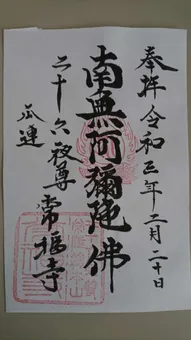 奉拝 令和三年二月二十日
南無阿彌陀佛
二十六夜尊
瓜連
常福寺